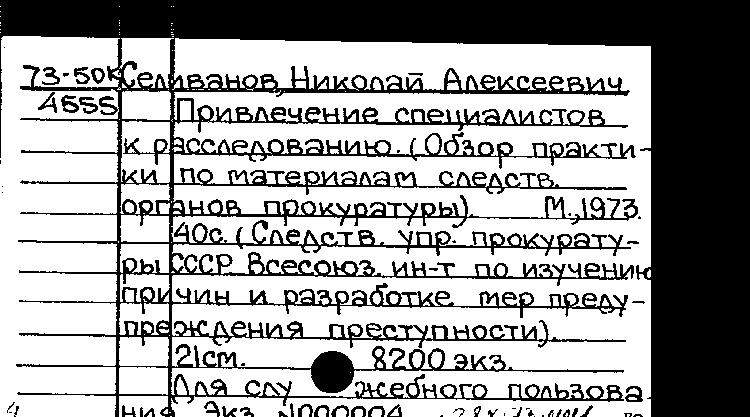 73-50К Селиванов, Николай Алексеевич
4555 Привлечение специалистов
к расследованию. (Обзор практи-
ки по материалам следств.
органов прокуратуры). М., 1973.
40с. (Следств. упр. прокурату-
ры СССР. Всесоюз. ин-т по изучению
причин и разработке мер преду-
преждения преступности).
21см. 8200 экз.
Для служебного пользова
ния Экз. N000004